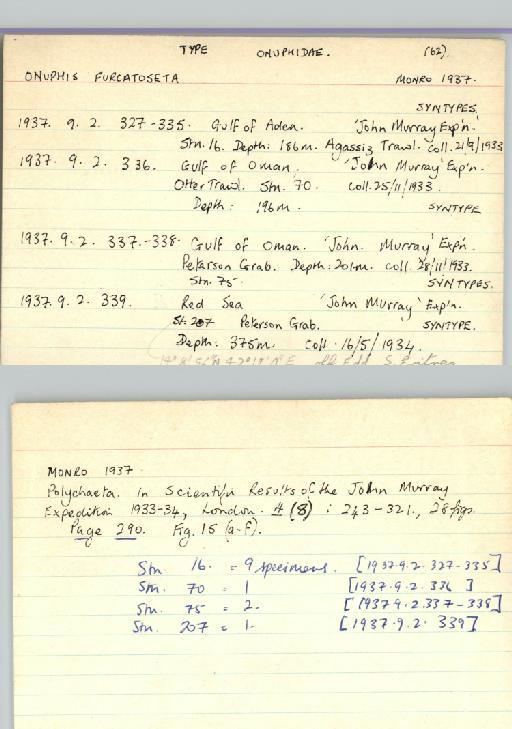 TYPE ONUPHIDAE. (62)
ONUPHIS FURCATOSETA MONRO 1937.
SYNTYPES.
1937. 9. 2. 327-335. Gulf of Aden. 'John Murray' Exp'n.
Stn. 16. Depth: 186m. Agassiz Trawl. coll. 21/9/1933
1937. 9. 2. 336. Gulf of Oman. 'John Murray' Exp'n.
Otter Trawl. Stn. 70. coll. 25/11/1933.
Depth: 196m. SYNTYPE
1937. 9. 2. 337-338. Gulf of Oman. 'John Murray' Exp'n.
Peterson Grab. Depth: 201m. coll. 28/11/1933.
Stn. 75. SYNTYPES.
1937. 9. 2. 339. Red Sea 'John Murray' Exp'n.
St. 207 Peterson Grab. SYNTYPE.
Depth: 375m. coll. 16/5/1934.
MONRO 1937.
Polychaeta. In Scientific Results of the John Murray
Expedition 1933-34, London. 4 (8) : 243-321., 28 figs.
Page 290. Fig. 15 (a-f).
Stn. 16. = 9 specimens. [1937.9.2. 327-335]
Stn. 70 = 1 [1937.9.2. 336]
Stn. 75 = 2. [1937.9.2.337-338]
Stn. 207 = 1. [1937.9.2. 339]